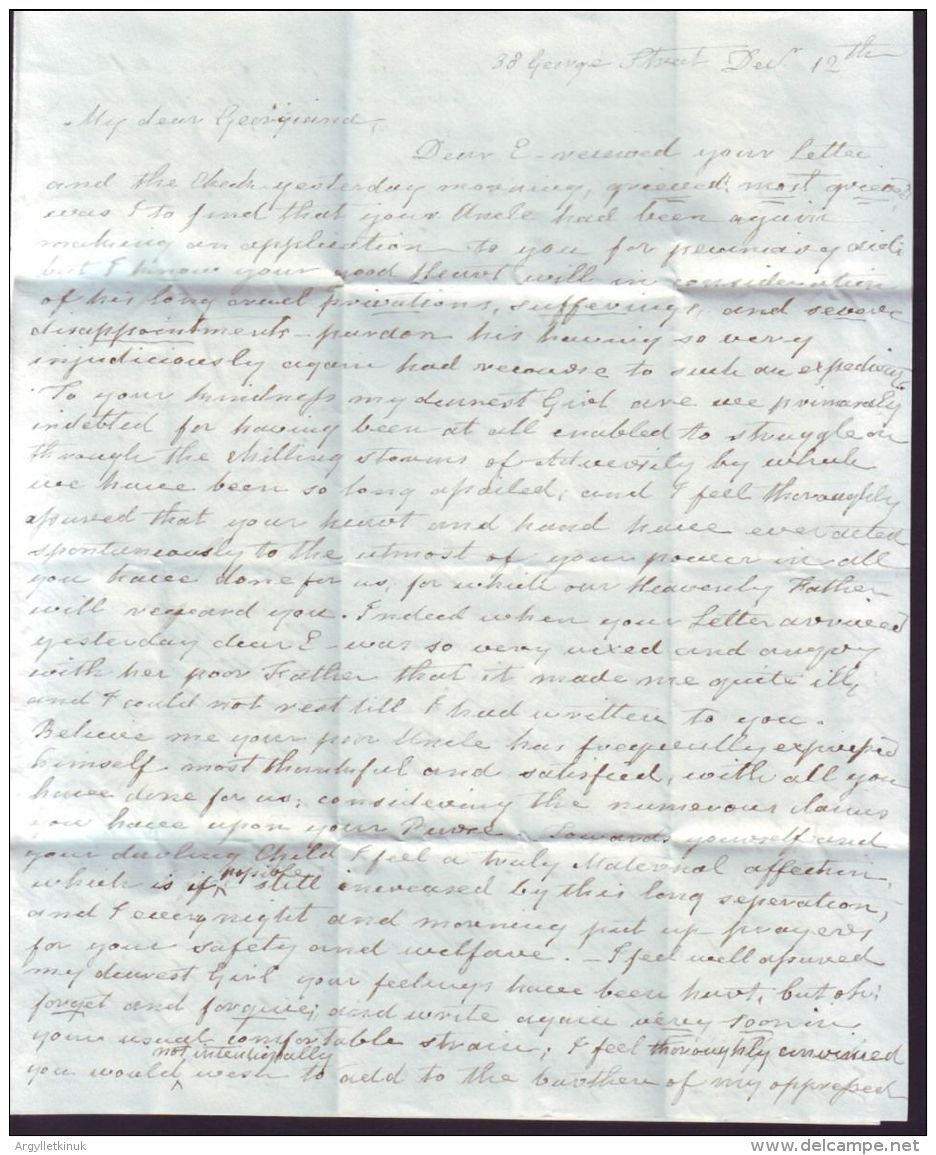 38 George Street Decr. 12th
My dear Georgiana,
Dear E - received your Letter
and the Check yesterday morning, grieved! most grieved,
was I to find that your Uncle had been again
making an application to you for pecuniary aid;
but I know your good Heart will in consideration
of his long cruel privations, sufferings, and severe
disappointments - pardon his having so very
injudiciously again had recourse to such an expedient,
To your kindness my dearest Girl are we primarily
indebted for having been at all enabled to struggle on
through the chilling storms of Adversity by which
we have been so long assailed; and I feel thoroughly
assured that your heart and hand have ever acted
spontaneously to the utmost of your power in all
you have done for us, for which our Heavenly Father
will reward you. Indeed when your Letter arrived
yesterday dear E - was so very vexed and angry
with her poor Father that it made me quite ill,
and I could not rest till I had written to you.
Believe me your poor Uncle has frequently expressed
himself most thankful and satisfied, with all you
have done for us; considering the numerous claims
you have upon your Purse. Towards yourself and
your darling Child I feel a truly Maternal affection,
which is if possible still increased by this long seperation,
and I every night and morning put up prayers
for your safety and welfare. - I feel well assured
my dearest Girl your feelings have been hurt, but oh!
forget and forgive; and write again very soon in
your usual comfortable strain; I feel thoroughly convinced
you would not intentionally wish to add to the burthen of my oppressed
Argylletkinuk
www.delcampe.net